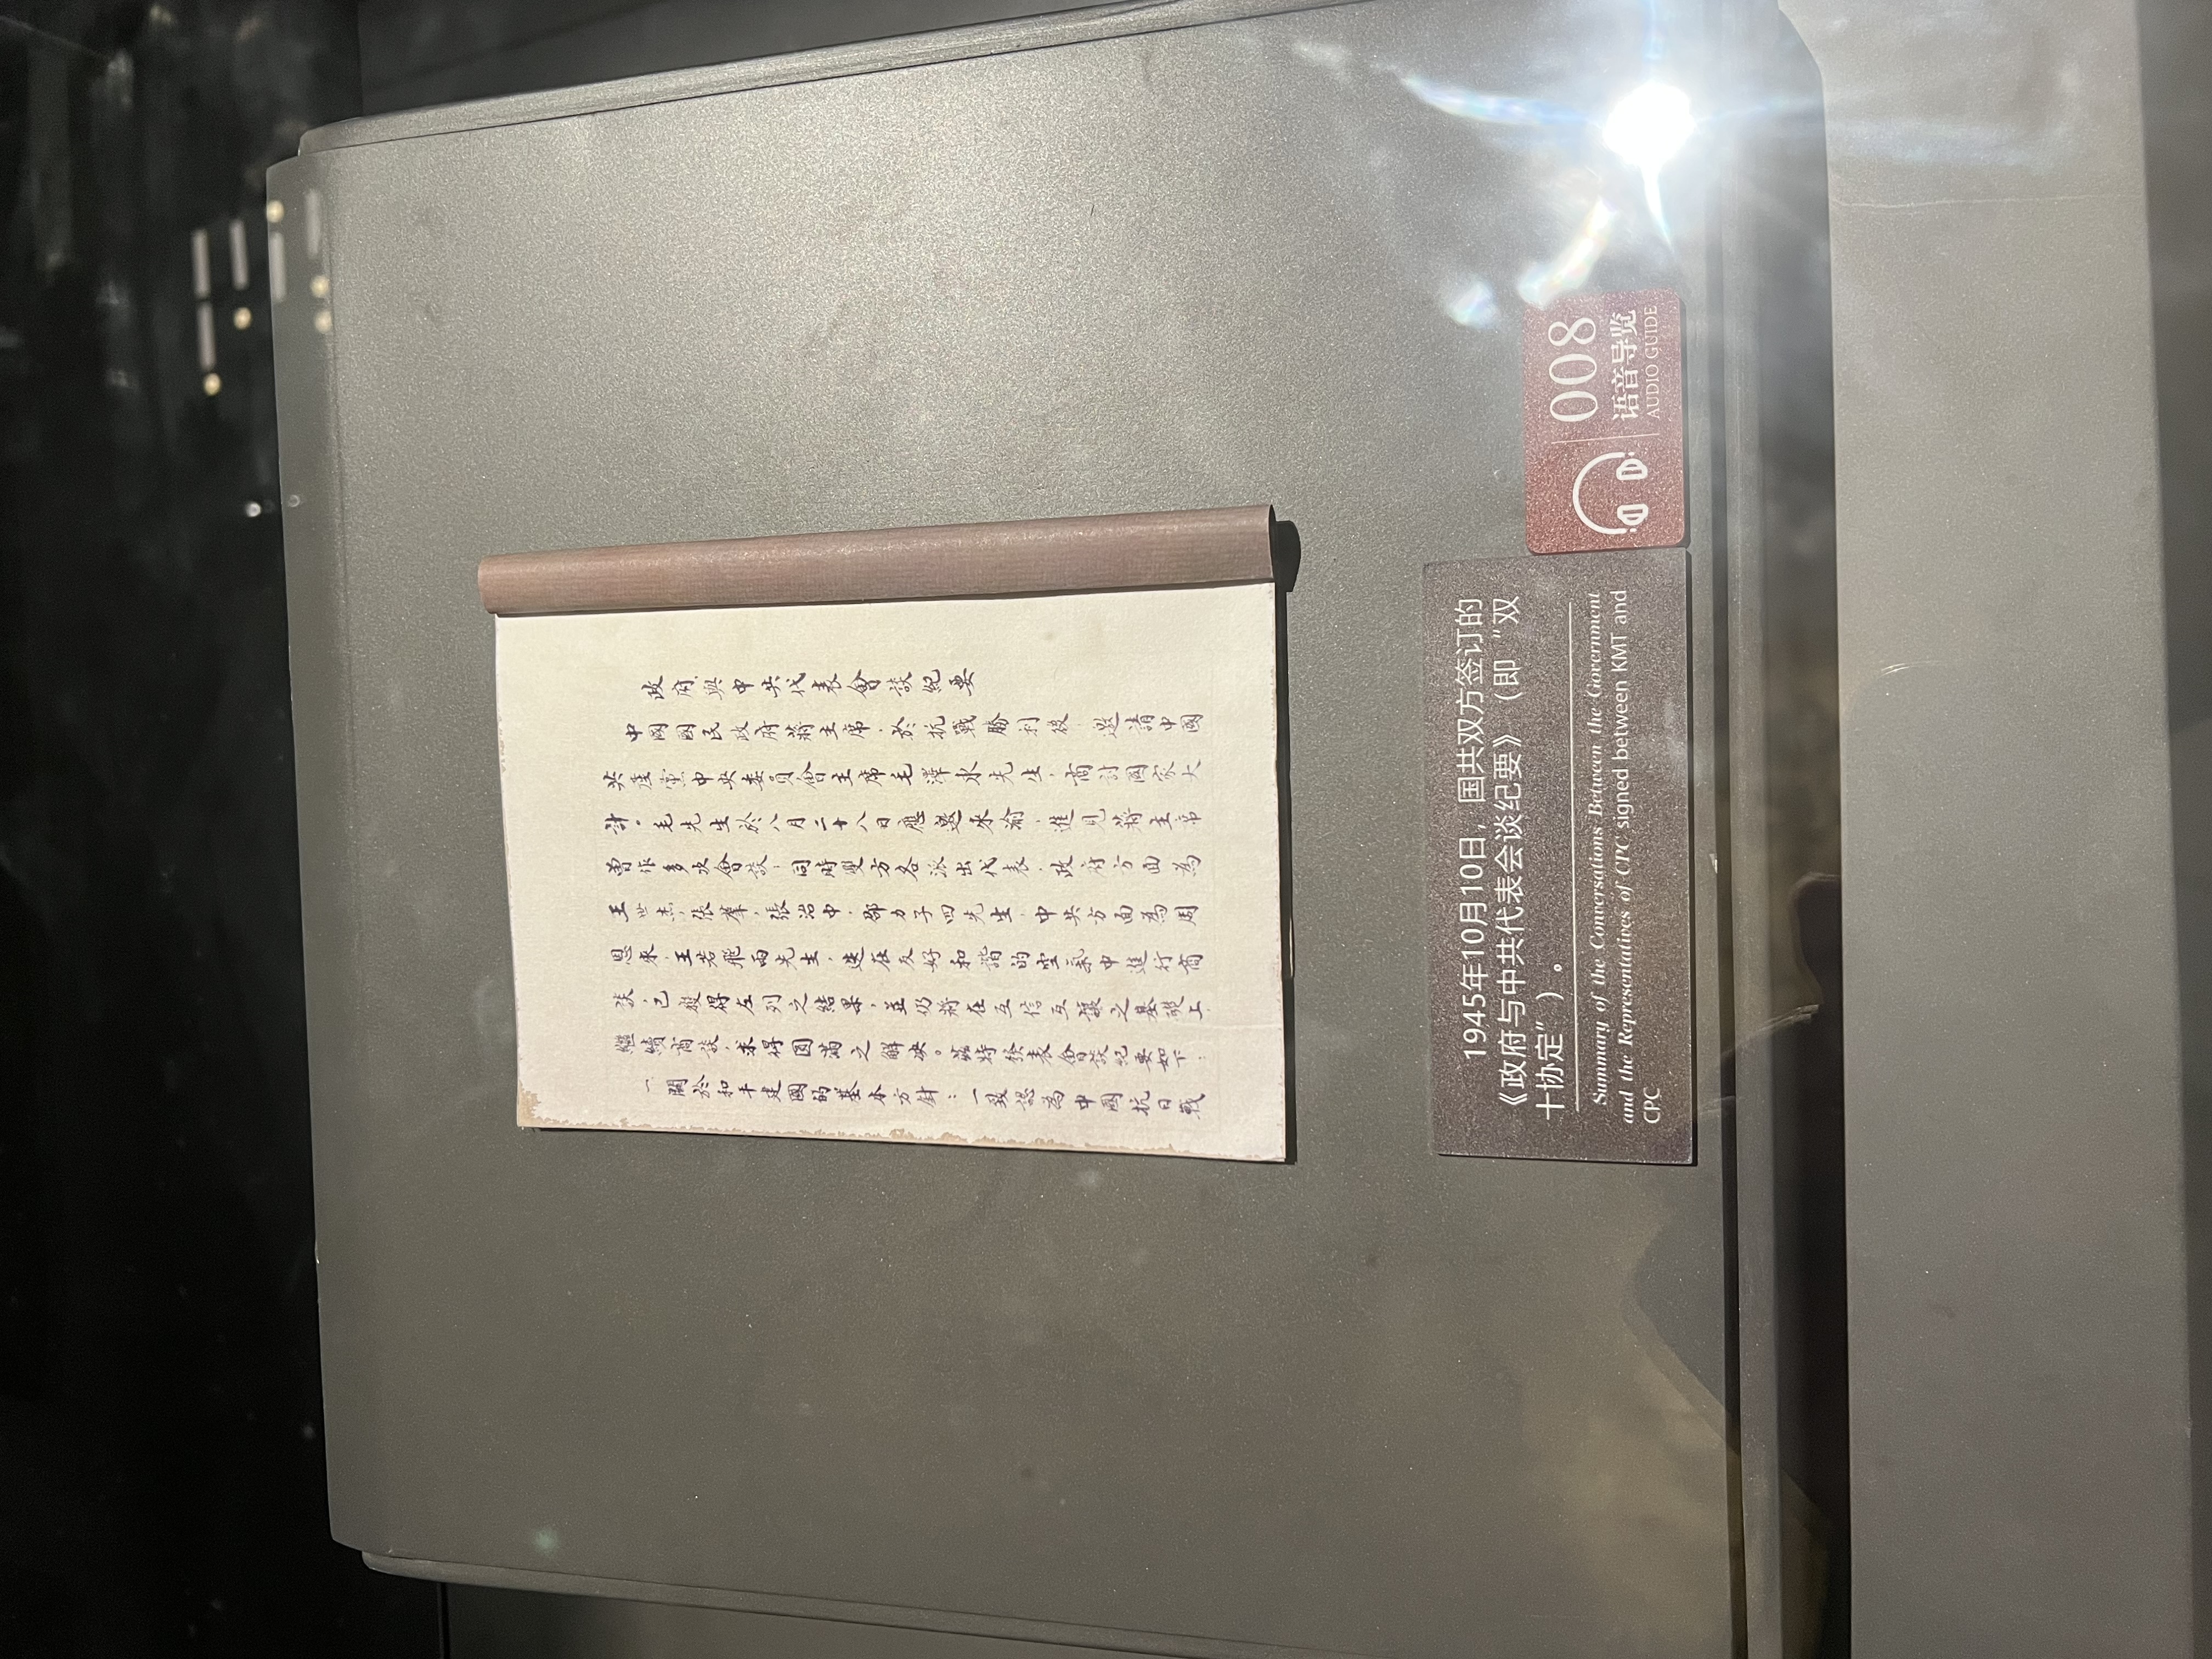 政府與中共代表會談紀要
中國國民政府蔣主席,於抗戰勝利後,邀請中國
共產黨中央委員會主席毛澤東先生,商討國家大
計。毛先生於八月二十八日應邀來渝,進見蔣主席
曾作多次會談;同時雙方各派出代表,政府方面為
王世杰,張羣,張治中,邵力子四先生,中共方面為周
恩來,王若飛兩先生,迭在友好和諧的空氣中進行商
談,已獲得左列之結果,並仍將在互信互讓之基礎上,
繼續商談,求得圓滿之解決。茲特發表會談紀要如下:
一、關於和平建國的基本方針:一致認為中國抗日戰
1945年10月10日,国共双方签订的
《政府与中共代表会谈纪要》(即“双
十协定”)。
Summary of the Conversations Between the Government
and the Representatives of CPC signed between KMT and
CPC
008
语音导览
AUDIO GUIDE